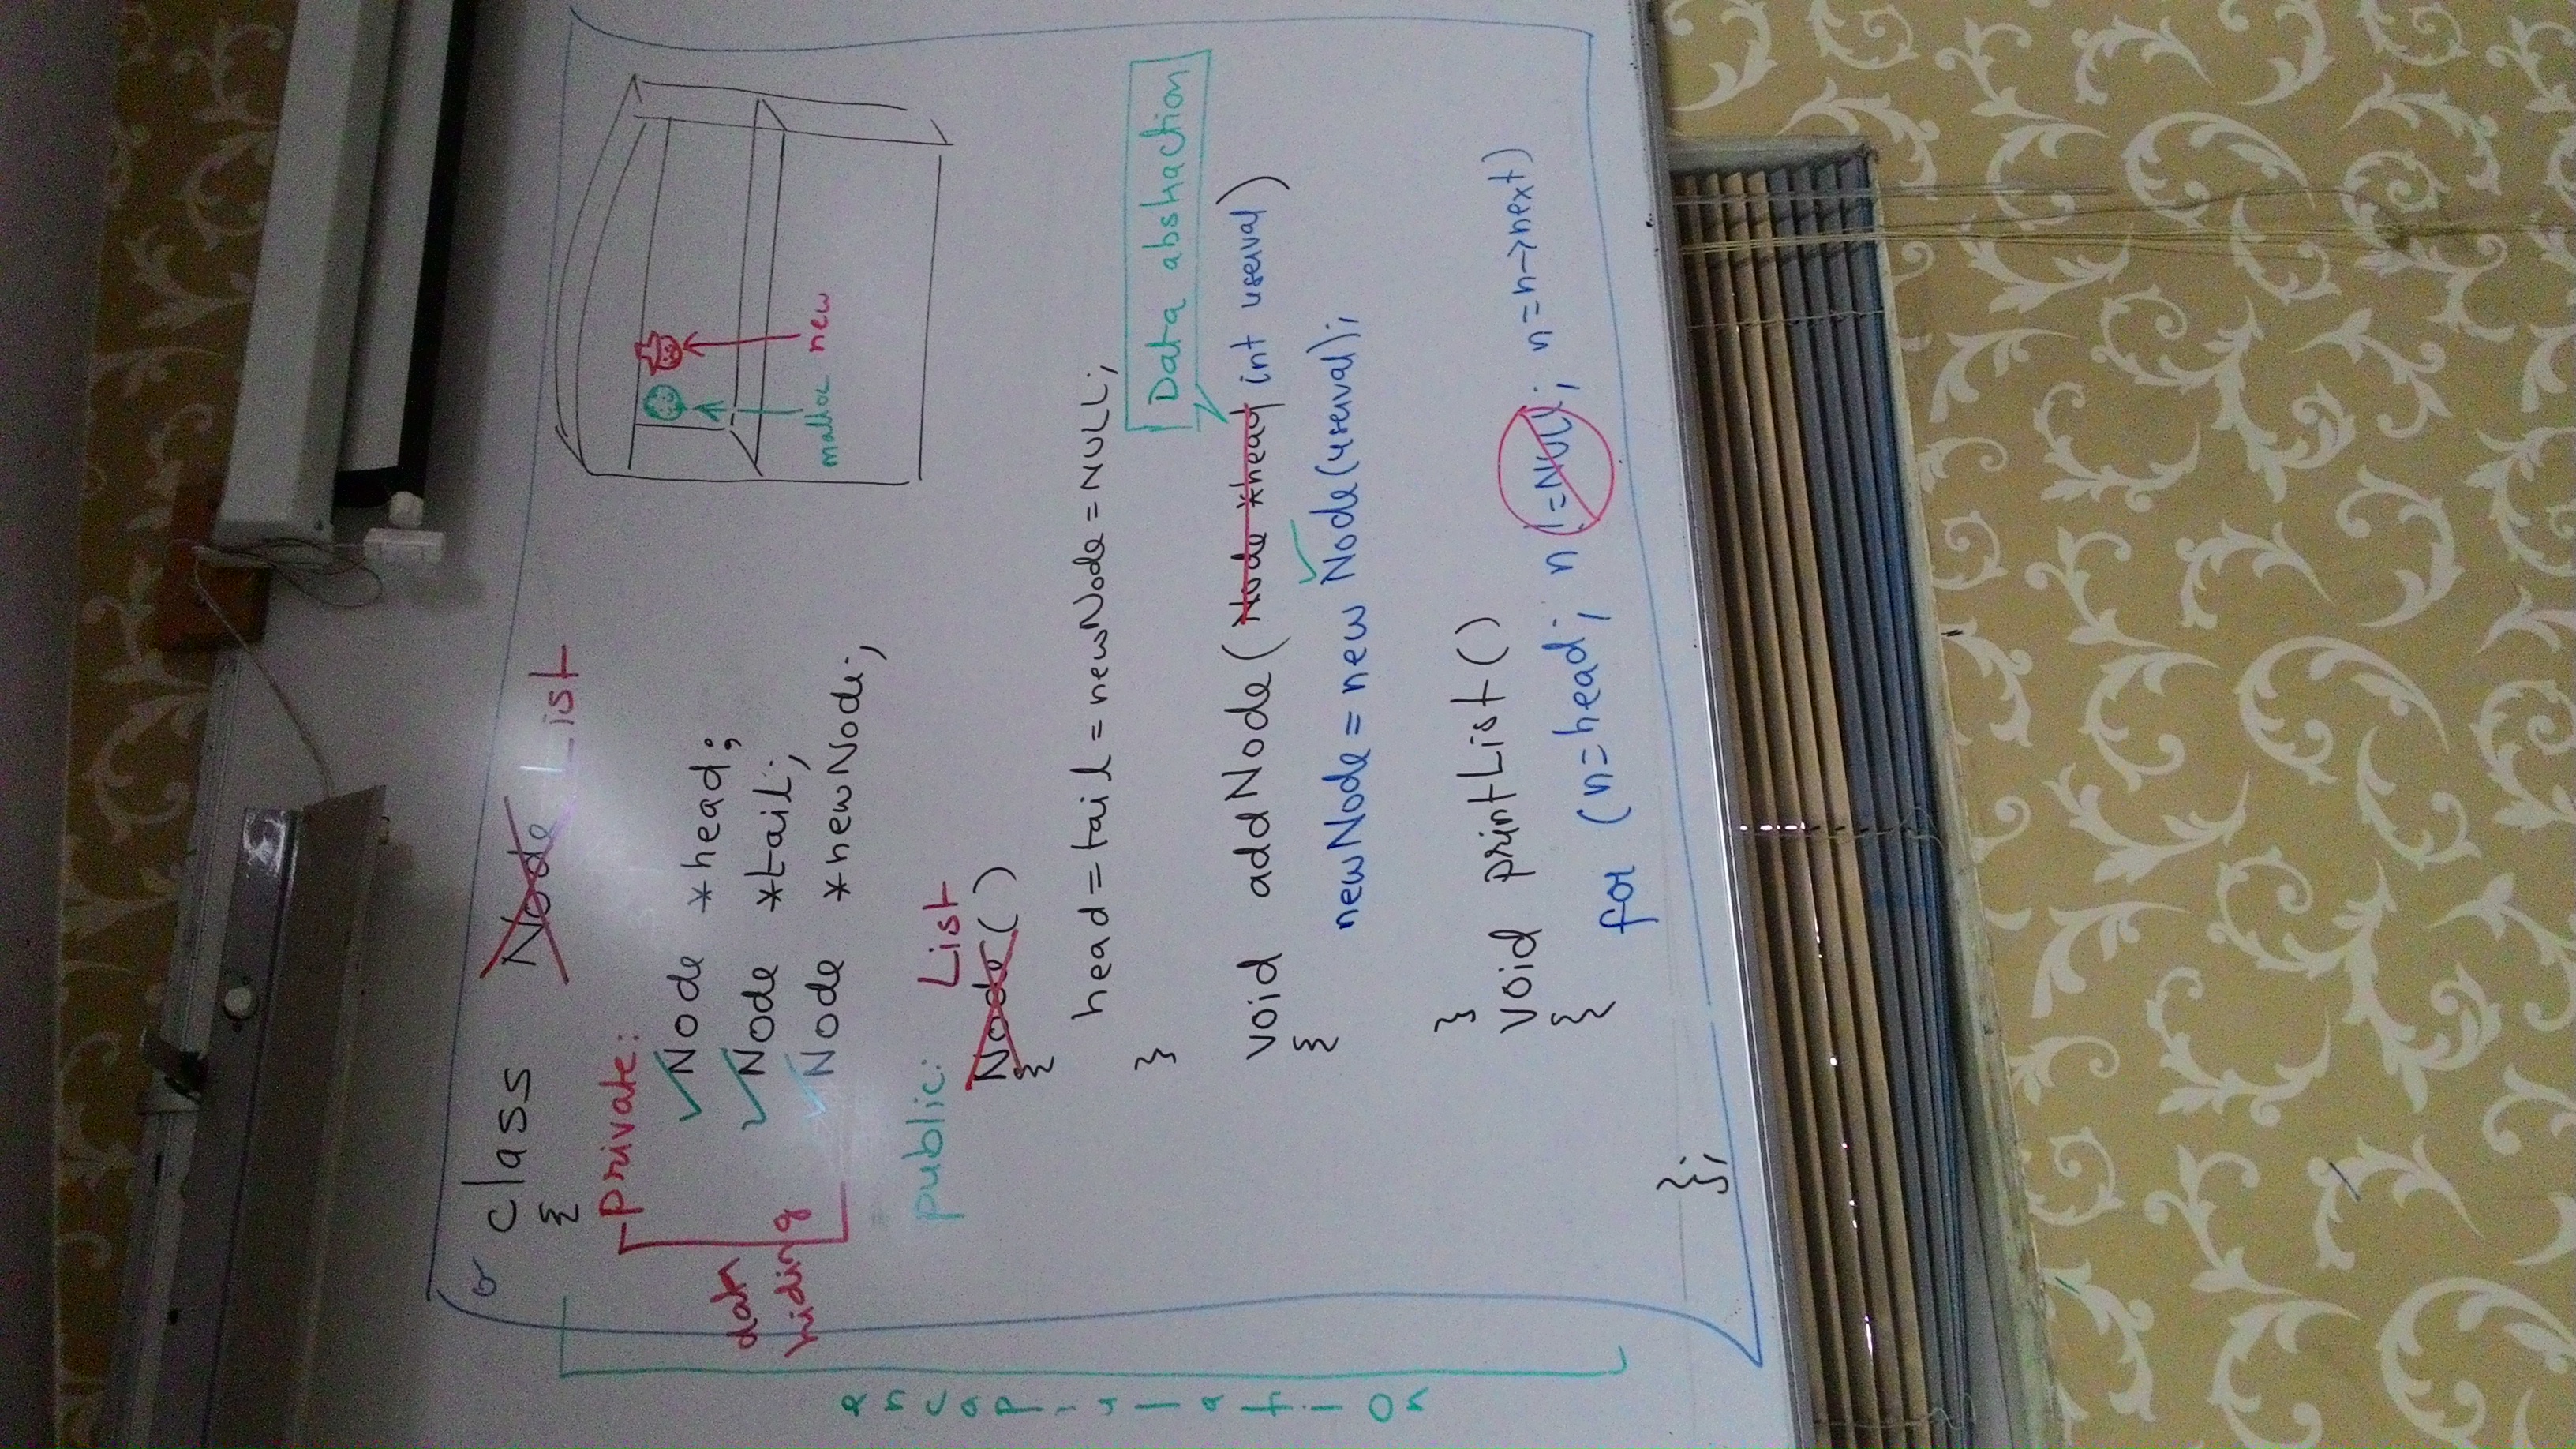 class Node List
{
private:
Node *head;
Node *tail;
Node *newNode;
data
hiding
encapsulation
malloc new
public:
List
Node()
{
head=tail=newNode=NULL;
}
Data abstraction
void addNode(Node *head int userval)
{
newNode=new Node(userval);
}
void printList()
{
for (n=head; n!=NULL; n=n->next)
};